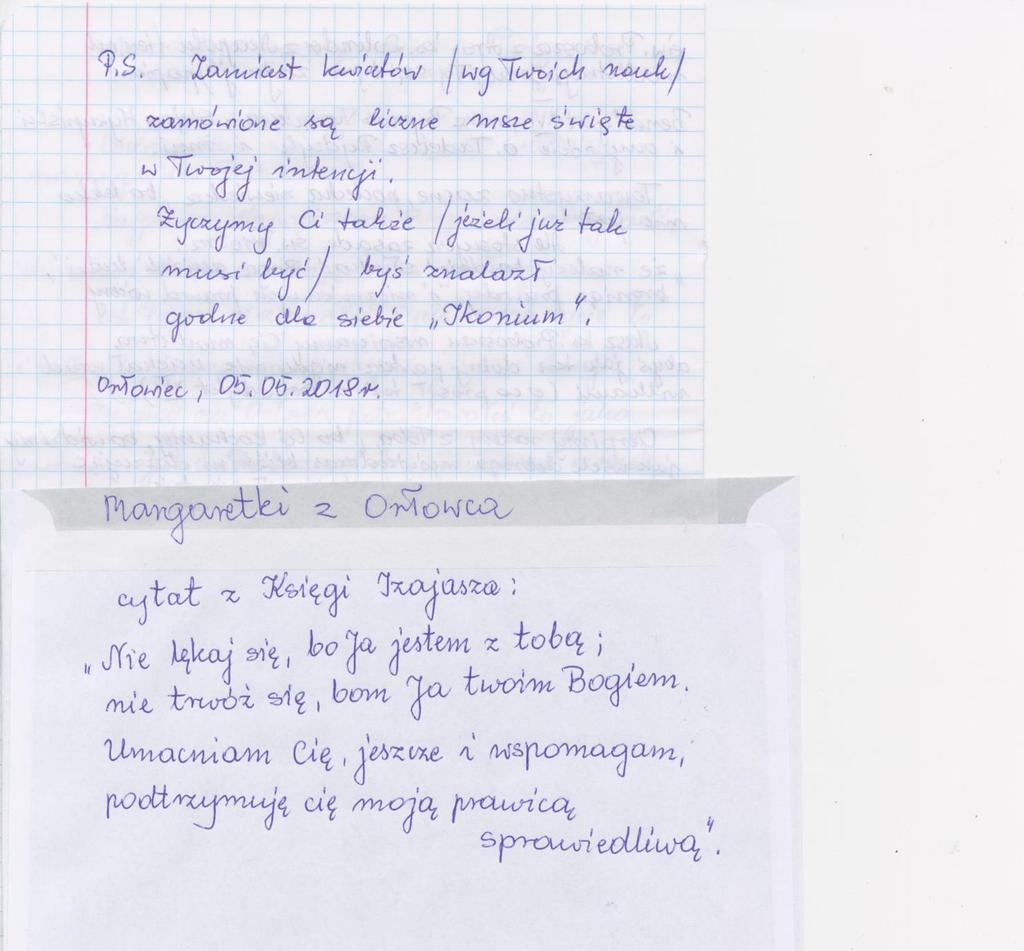 P.S. Zamiast kwiatów /wg Twoich nauk/
zamówione są liczne msze święte
w Twojej intencji.
Życzymy Ci także /jeżeli już tak
musi być/ byś znalazł
godne dla siebie „Ikonium".
Orłowiec, 05.05.2018r.
Margaretki z Orłowca
cytat z Księgi Izajasza:
„Nie lękaj się, bo Ja jestem z tobą;
nie trwóż się, bom Ja twoim Bogiem.
Umacniam Cię, jeszcze i wspomagam,
podtrzymuję cię moją prawicą
sprawiedliwą".